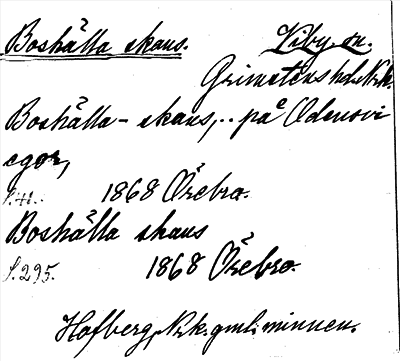 Boshälla skans. Viby sn.
Grimstens hd. Nrk.
Boshälla-skans,.. på Odensvi
egor,
S. 41. 1868 Örebro.
Boshälla skans
S. 295. 1868 Örebro.
Hofberg, Nrk. gml. minnen.